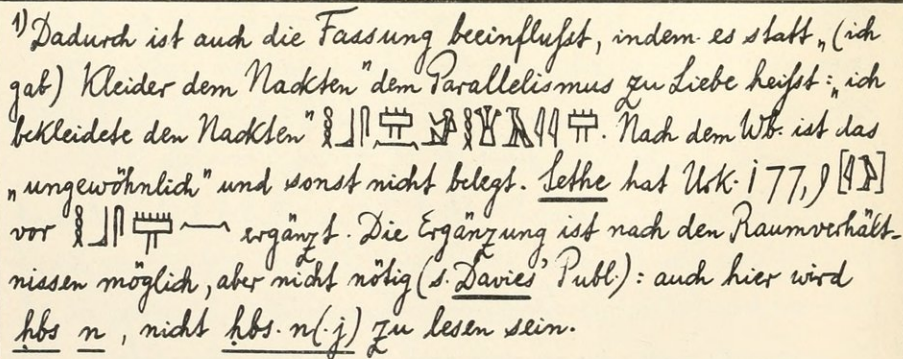 1) Dadurch ist auch die Fassung beeinflußt, indem es statt „(ich
gab) Kleider dem Nackten" dem Parallelismus zu Liebe heißt: „ich
bekleidete den Nackten" . Nach dem Wb. ist das
„ungewöhnlich" und sonst nicht belegt. Sethe hat Urk. I 77,9
vor ergänzt. Die Ergänzung ist nach den Raumverhält-
nissen möglich, aber nicht nötig (s. Davies' Publ.): auch hier wird
ḥbs n, nicht ḥbs.n(.j) zu lesen sein.